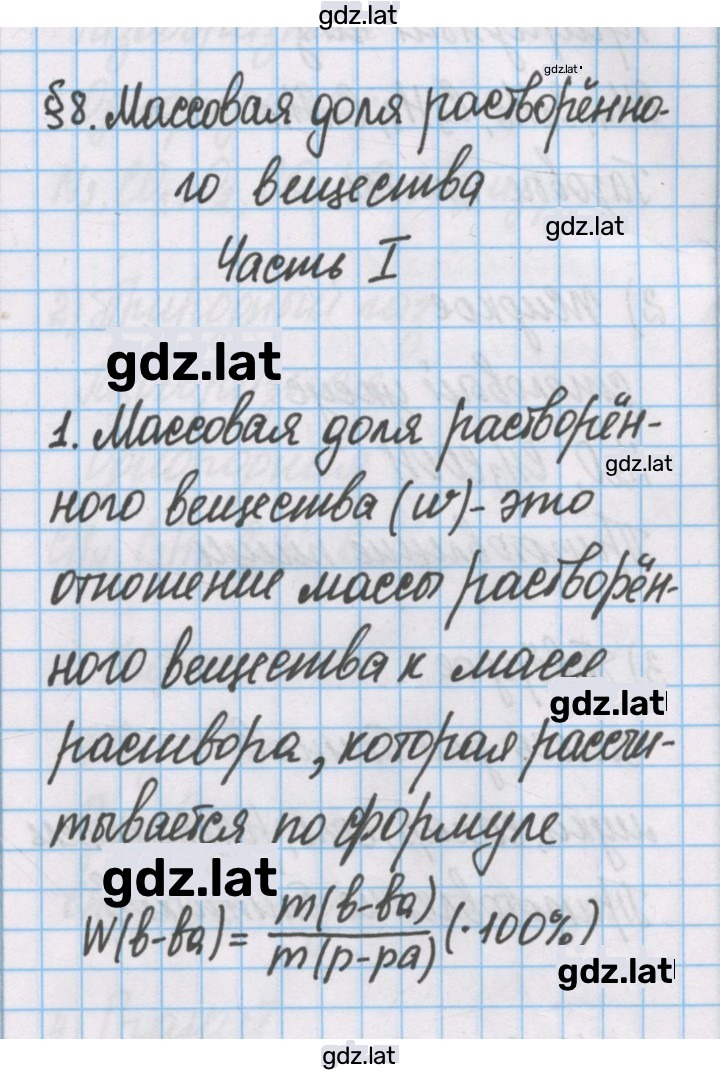 gdz.lat
gdz.lat
§8. Массовая доля растворённо-
го вещества
gdz.lat
Часть I
gdz.lat
1. Массовая доля растворён-
gdz.lat
ного вещества (w)- это
отношение массы растворён-
ного вещества к массе
gdz.lat
раствора, которая рассчи-
тывается по формуле
gdz.lat
W(в-ва) = m(в-ва) / m(р-ра) (·100%)
gdz.lat
gdz.lat